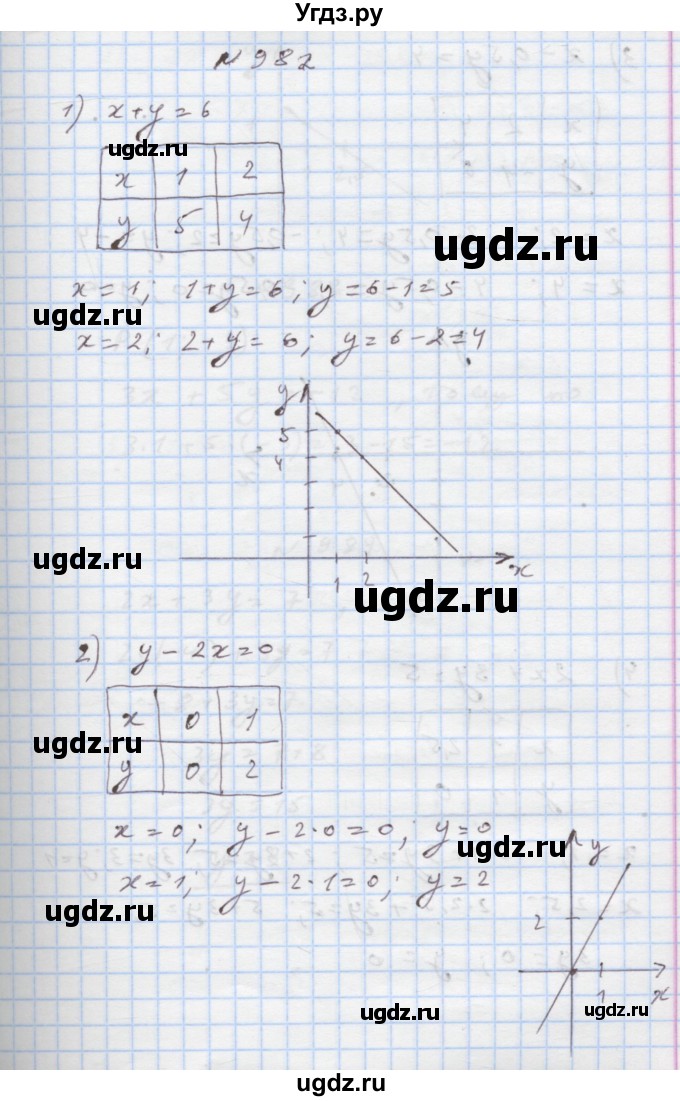 Угдз.ру
N 982
1) x+y=6
ugdz.ru
x 1 2
y 5 4
ugdz.ru
x=1; 1+y=6; y=6-1=5
ugdz.ru
x=2; 2+y=6; y=6-2=4
y
5
4
ugdz.ru
1 2 x
ugdz.ru
2) y-2x=0
x 0 1
ugdz.ru
y 0 2
x=0; y-2·0=0; y=0
ugdz.ru
x=1; y-2·1=0; y=2
ugdz.ru
y
2
1 x
ugdz.ru
ugdz.ru
ugdz.ru